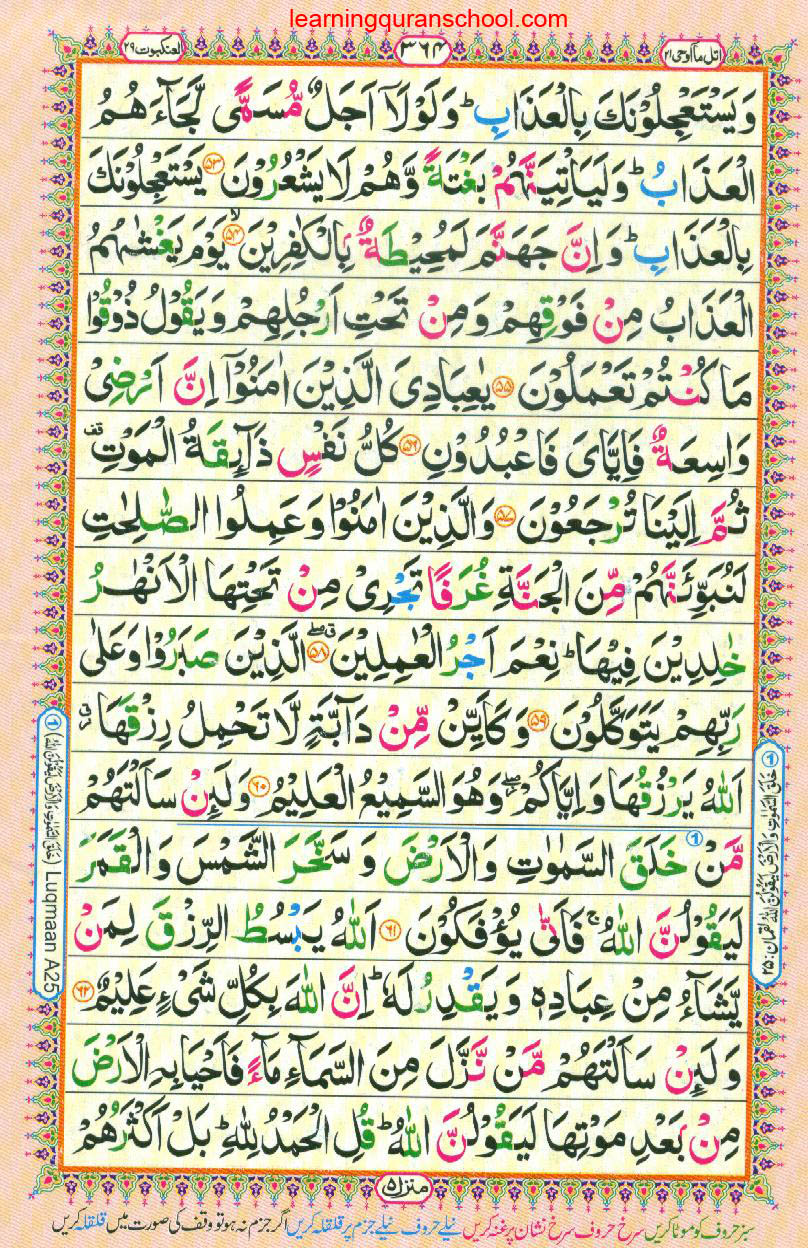 learningquranschool.com
اتل ما اوحی ۲۱
۳۶۴
العنكبوت ۲۹
وَيَسْتَعْجِلُوْنَكَ بِالْعَذَابِ ؕ وَلَوْ لَاۤ اَجَلٌ مُّسَمًّى لَّجَآءَهُمُ
الْعَذَابُ ؕ وَلَيَاْتِيَنَّهُمْ بَغْتَةً وَّهُمْ لَا يَشْعُرُوْنَ ۵۳ يَسْتَعْجِلُوْنَكَ
بِالْعَذَابِ ؕ وَاِنَّ جَهَنَّمَ لَمُحِيْطَةٌۢ بِالْكٰفِرِيْنَ ۙ ۵۴ يَوْمَ يَغْشٰىهُمُ
الْعَذَابُ مِنْ فَوْقِهِمْ وَمِنْ تَحْتِ اَرْجُلِهِمْ وَيَقُوْلُ ذُوْقُوْا
مَا كُنْتُمْ تَعْمَلُوْنَ ۵۵ يٰعِبَادِىَ الَّذِيْنَ اٰمَنُوْۤا اِنَّ اَرْضِىْ
وَاسِعَةٌ فَاِيَّاىَ فَاعْبُدُوْنِ ۵۶ كُلُّ نَفْسٍ ذَآئِقَةُ الْمَوْتِ قف
ثُمَّ اِلَيْنَا تُرْجَعُوْنَ ۵۷ وَالَّذِيْنَ اٰمَنُوْا وَعَمِلُوا الصّٰلِحٰتِ
لَنُبَوِّئَنَّهُمْ مِّنَ الْجَنَّةِ غُرَفًا تَجْرِىْ مِنْ تَحْتِهَا الْاَنْهٰرُ
خٰلِدِيْنَ فِيْهَا ؕ نِعْمَ اَجْرُ الْعٰمِلِيْنَ ۵۸ الَّذِيْنَ صَبَرُوْا وَعَلٰى
رَبِّهِمْ يَتَوَكَّلُوْنَ ۵۹ وَكَاَيِّنْ مِّنْ دَآبَّةٍ لَّا تَحْمِلُ رِزْقَهَا
اَللّٰهُ يَرْزُقُهَا وَاِيَّاكُمْ وَهُوَ السَّمِيْعُ الْعَلِيْمُ ۶۰ وَلَئِنْ سَاَلْتَهُمْ
مَّنْ خَلَقَ السَّمٰوٰتِ وَالْاَرْضَ وَسَخَّرَ الشَّمْسَ وَالْقَمَرَ
لَيَقُوْلُنَّ اللّٰهُ ۚ فَاَنّٰى يُؤْفَكُوْنَ ۶۱ اَللّٰهُ يَبْسُطُ الرِّزْقَ لِمَنْ
يَّشَآءُ مِنْ عِبَادِهٖ وَيَقْدِرُ لَهٗ ؕ اِنَّ اللّٰهَ بِكُلِّ شَىْءٍ عَلِيْمٌ ۶۲
وَلَئِنْ سَاَلْتَهُمْ مَّنْ نَّزَّلَ مِنَ السَّمَآءِ مَآءً فَاَحْيَا بِهِ الْاَرْضَ
مِنْۢ بَعْدِ مَوْتِهَا لَيَقُوْلُنَّ اللّٰهُ ؕ قُلِ الْحَمْدُ لِلّٰهِ ؕ بَلْ اَكْثَرُهُمْ
① خَلَقَ السَّمٰوٰتِ وَالْاَرْضَ لَيَقُوْلُنَّ اللّٰهُ لقمان : ۲۵
① (خَلَقَ السَّمٰوٰتِ وَالْاَرْضَ لَيَقُوْلُنَّ اللّٰهُ) Luqmaan A25
منزل ۵
سبز حروف کو موٹا کریں سرخ حروف سرخ نشان پر غنہ کریں نیلے حروف نیلے جزم پر قلقلہ کریں اگر جزم نہ ہو تو وقف کی صورت میں قلقلہ کریں